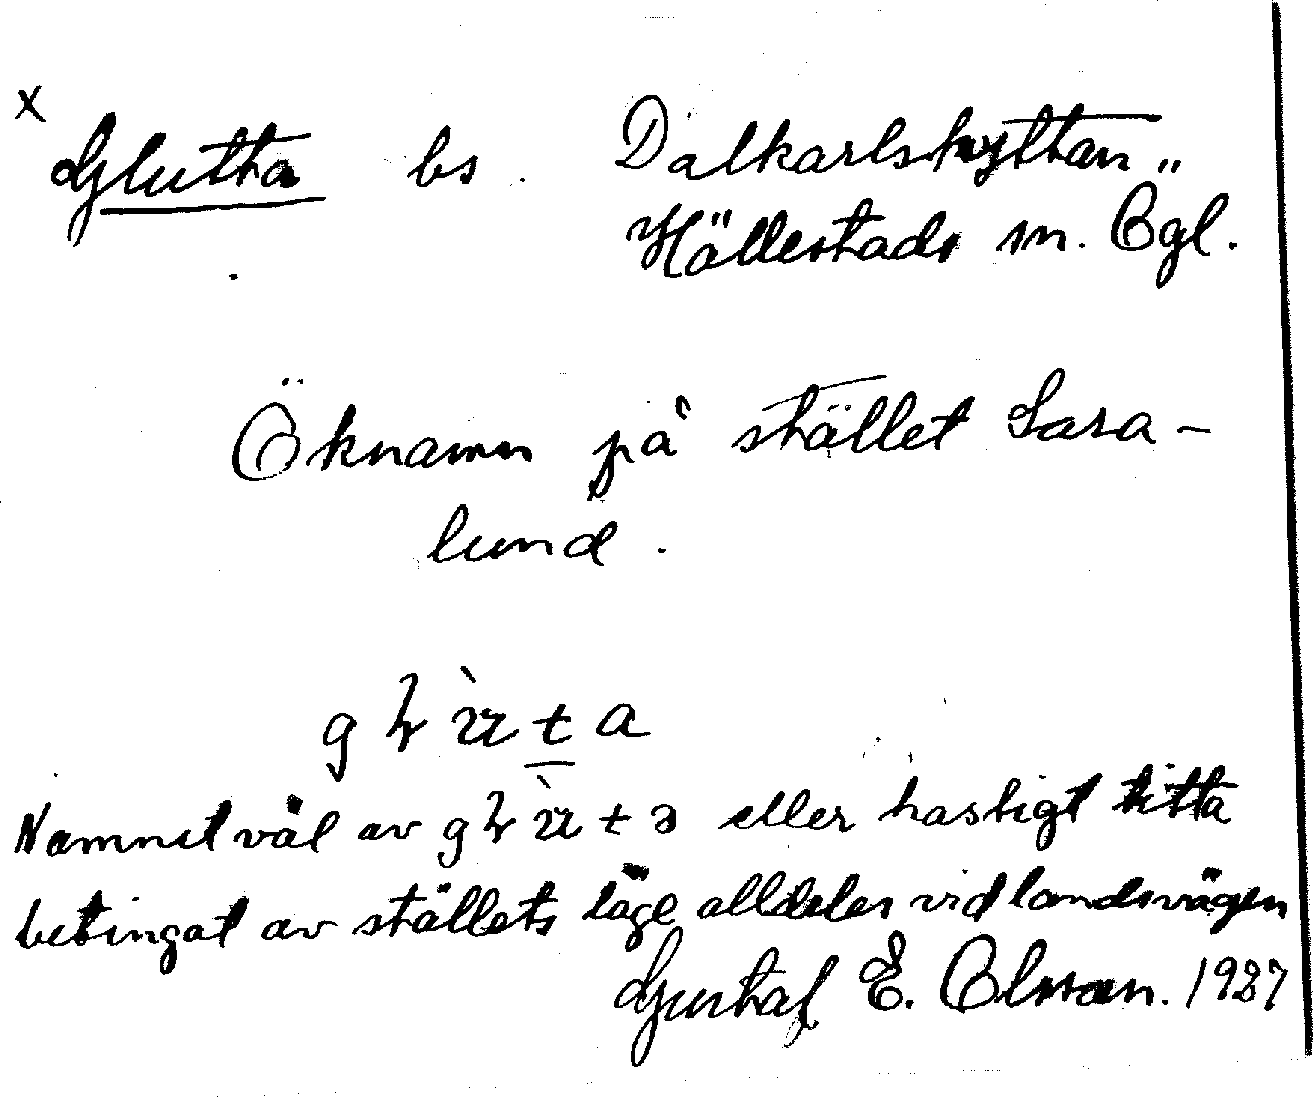 x
Glutta bs. Dalkarlshyttan,,
Hällestads sn. Ögl.
Öknamn på stället Sara-
lund.
Namnet väl av eller hastigt titta
betingat av ställets läge alldeles vid landsvägen
Gustaf E. Olsson. 1927